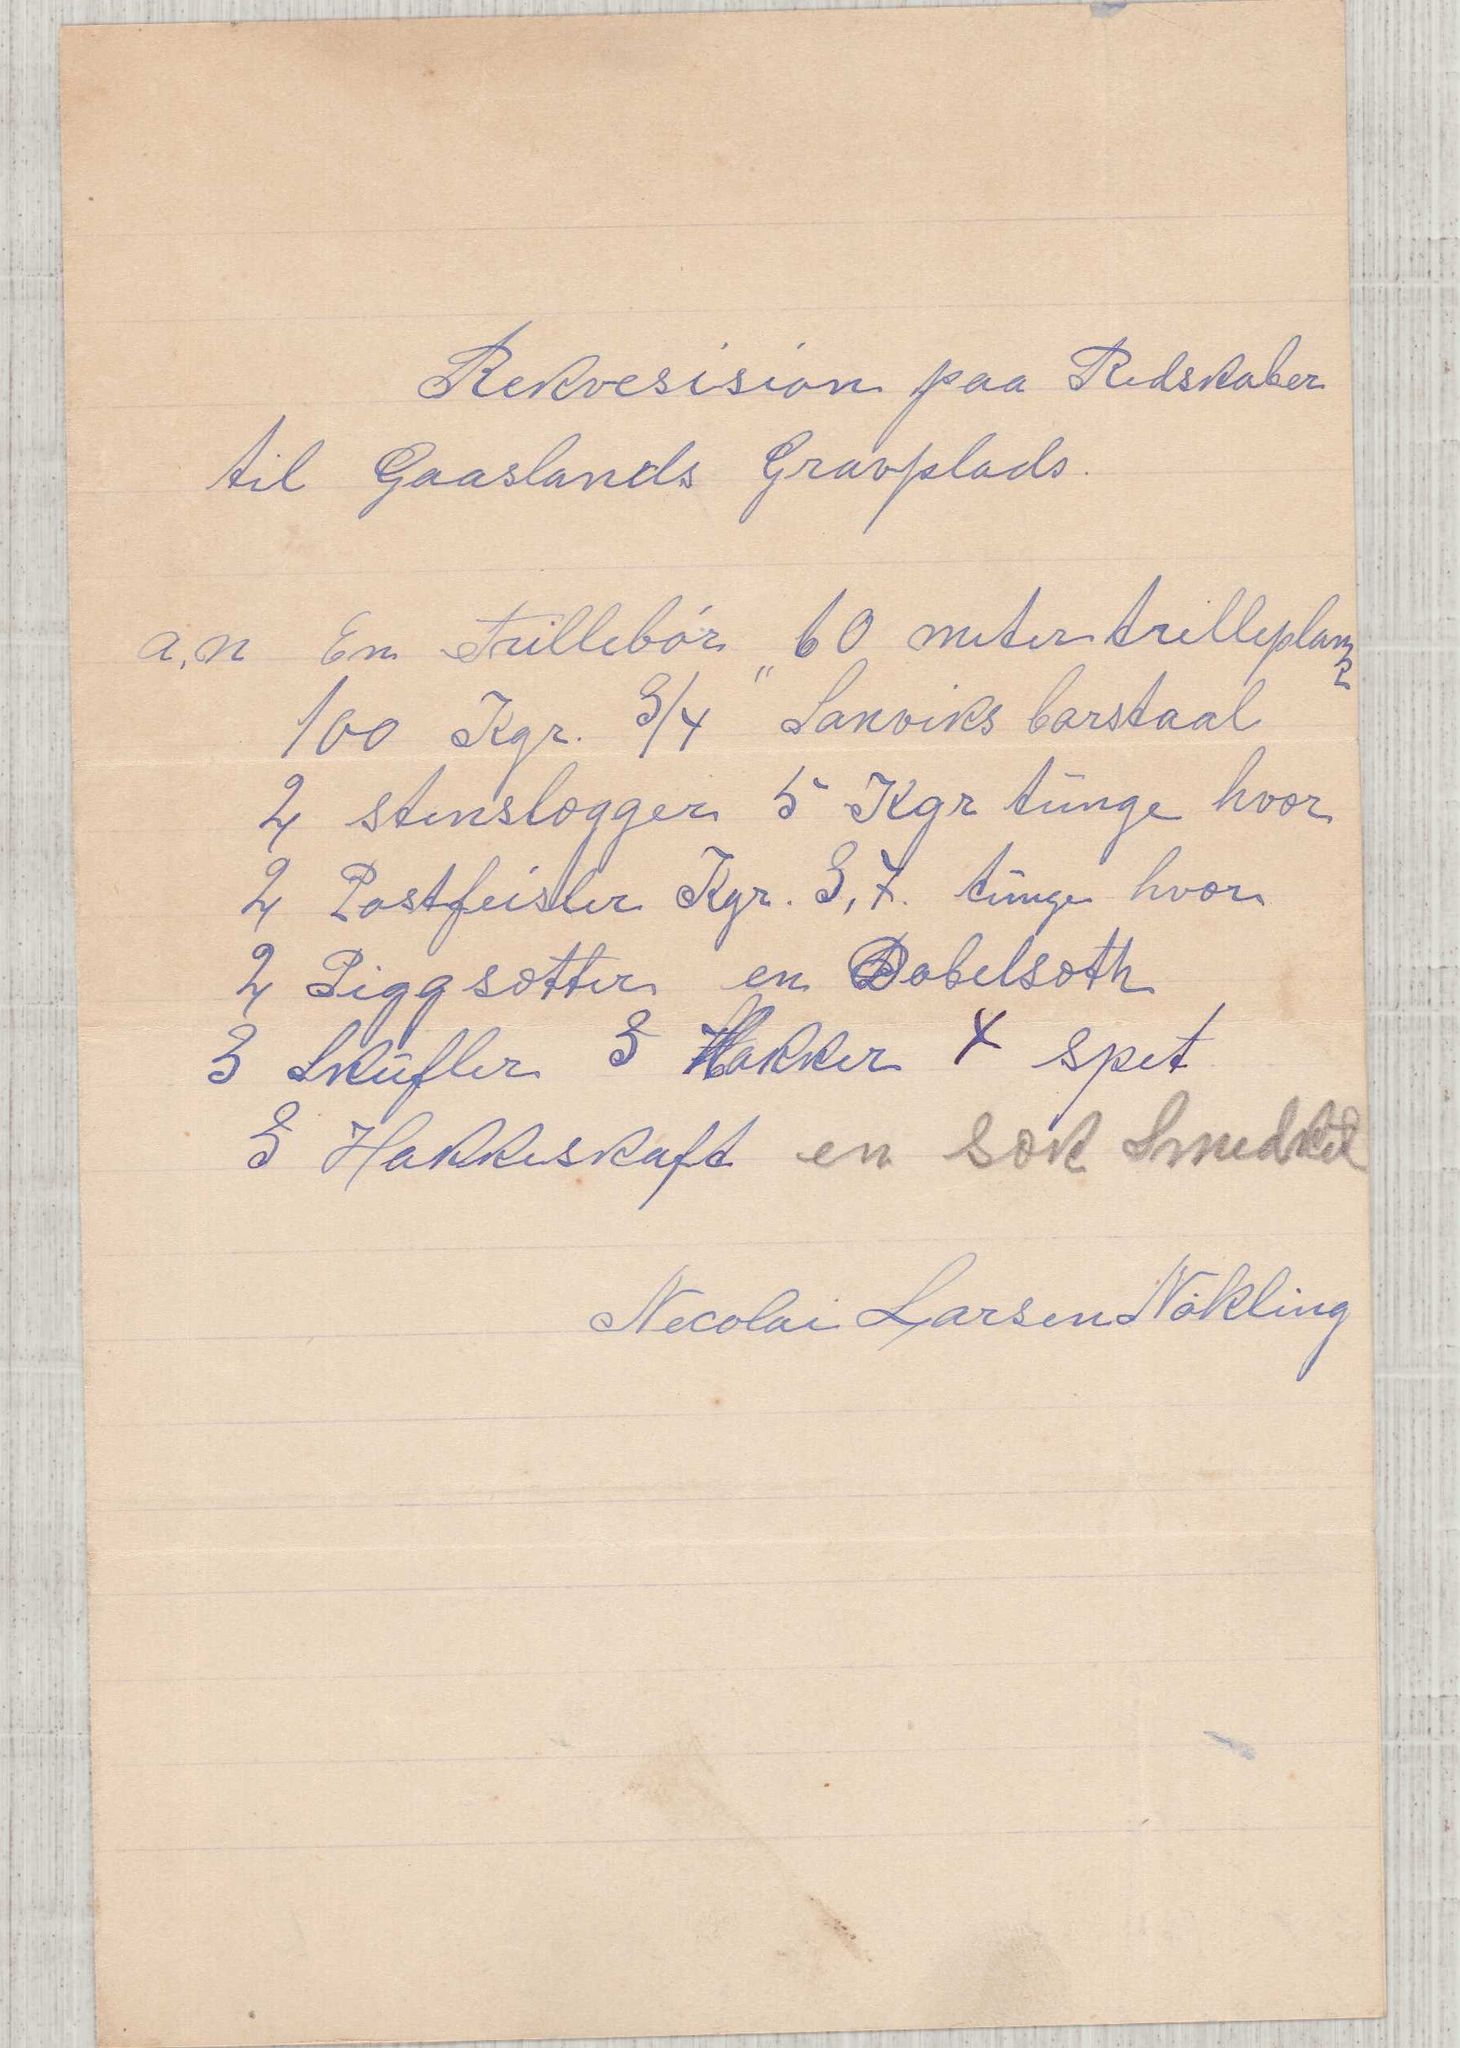 Rekvesision paa Redskaber
til Gaaslands Gravplads.
a,n En Trillebör 60 meter trilleplank
100 Kgr. 3/4" Sanviks borstaal
2 stenslægger 5 Kgr tünge hvor
2 Postfeisler Kgr. 3,7. tünge hvor
2 Piggsætter en Dobelsæth
3 Sküfler 3 Hakker 4 spet
3 Hakkeskaft en sæk Smedkul
Necolai Larsen Nökling